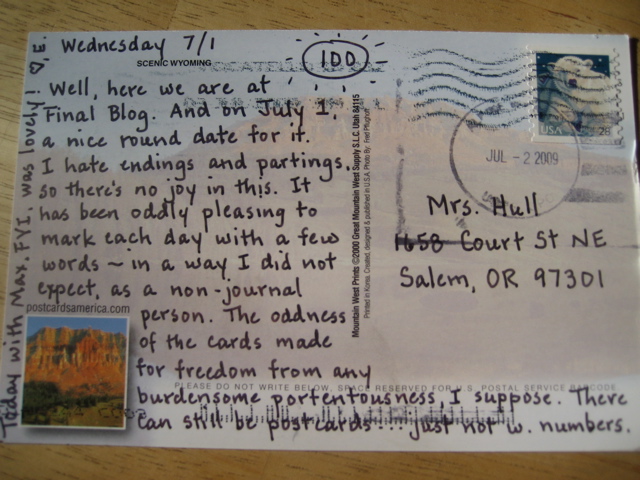 Wednesday 7/1
SCENIC WYOMING
100
Well, here we are at
Final Blog. And on July 1,
a nice round date for it.
I hate endings and partings,
so there's no joy in this. It
has been oddly pleasing to
mark each day with a few
words ~ in a way I did not
expect, as a non-journal
person. The oddness
of the cards made
for freedom from any
burdensome portentousness, I suppose. There
can still be postcards... just not w. numbers.
Today with Max. FYI, was lovely! ♡, E.
postcardsamerica.com
Mountain West Prints ©2000 Great Mountain West Supply S.L.C. Utah 84115
Printed in Korea. Created, designed & published in U.S.A. Photo By: Fred Pflughoft
USA 28
JUL - 2 2009
Mrs. Hull
1658 Court St NE
Salem, OR 97301
PLEASE DO NOT WRITE BELOW, SPACE RESERVED FOR U.S. POSTAL SERVICE BARCODE